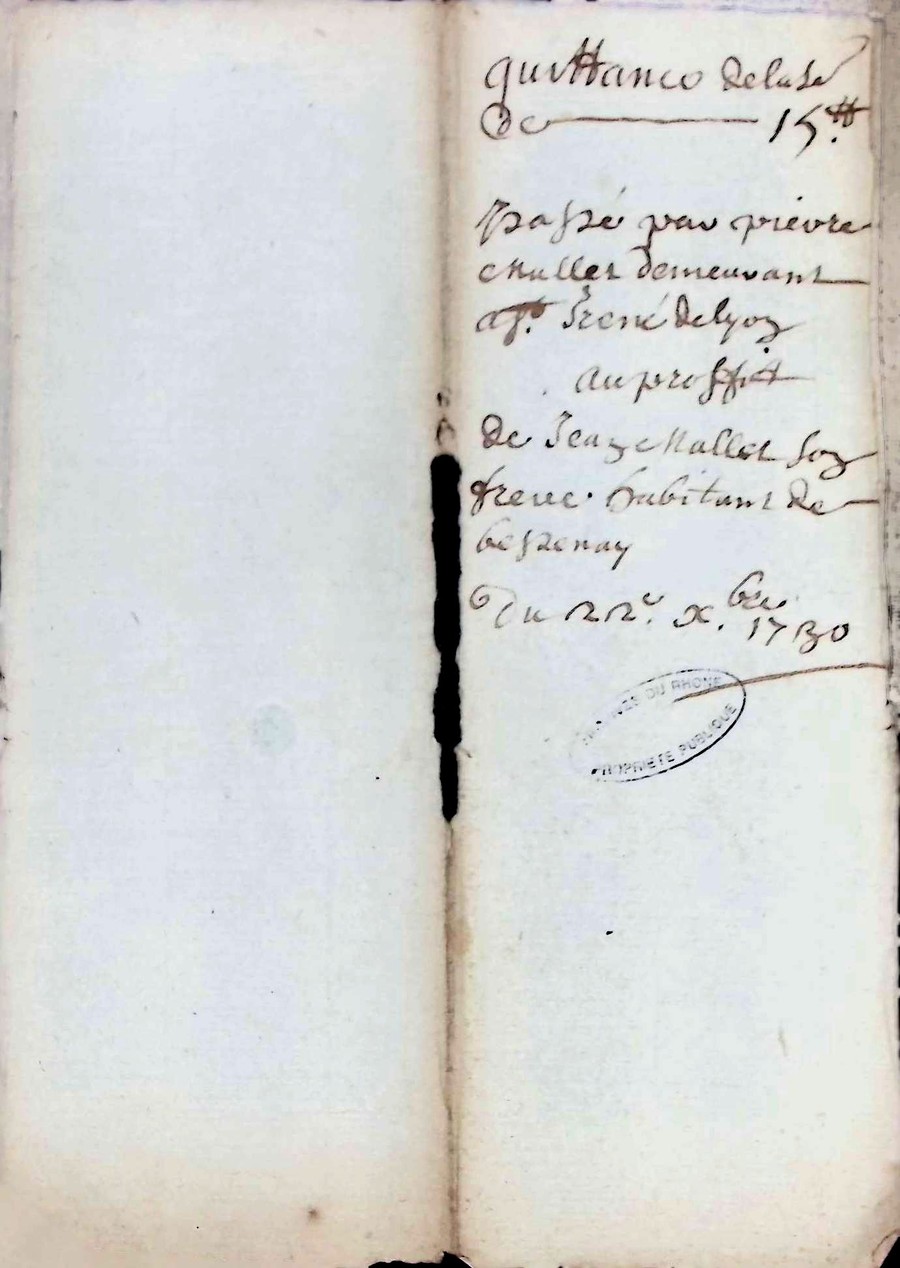 quittance de la so
De 15 ₶
passé par pierre
Mallet demeurant
a st. Irené de lyon
au proffit
de Jean Mallet son
frere habitant de
bessenay
Du 22e. xbre.
1730
ARCHIVES DU RHONE
PROPRIETE PUBLIQUE